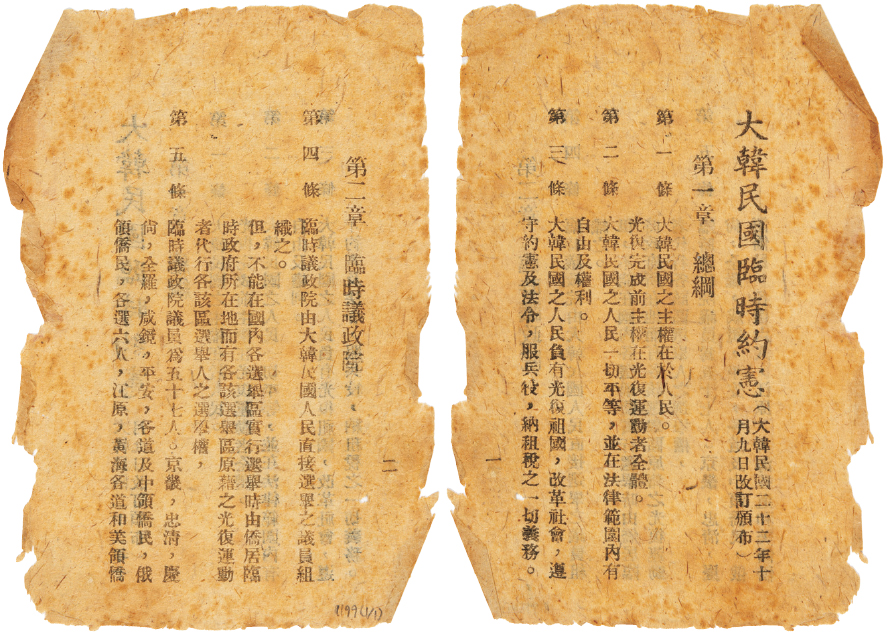 大韓民國臨時約憲(大韓民國二十二年十
月九日改訂頒布)
第一章 總綱
第一條 大韓民國之主權在於人民。
光復完成前主權在光復運動者全體。
第二條 大韓民國之人民一切平等,並在法律範圍內有
自由及權利。
第三條 大韓民國之人民負有光復祖國,改革社會,遵
守約憲及法令,服兵役,納租稅之一切義務。
一
第二章 臨時議政院
第四條 臨時議政院由大韓民國人民直接選舉之議員組
織之。
但,不能在國內各選舉區實行選舉時由僑居臨
時政府所在地而有各該選舉區原籍之光復運動
者代行各該區選舉人之選舉權,
第五條 臨時議政院議員爲五十七人。京畿,忠清,慶
尙,全羅,咸鏡,平安,各道及中領僑民,俄
領僑民,各選六人,江原,黃海各道和美領僑
二
1199(1/1)